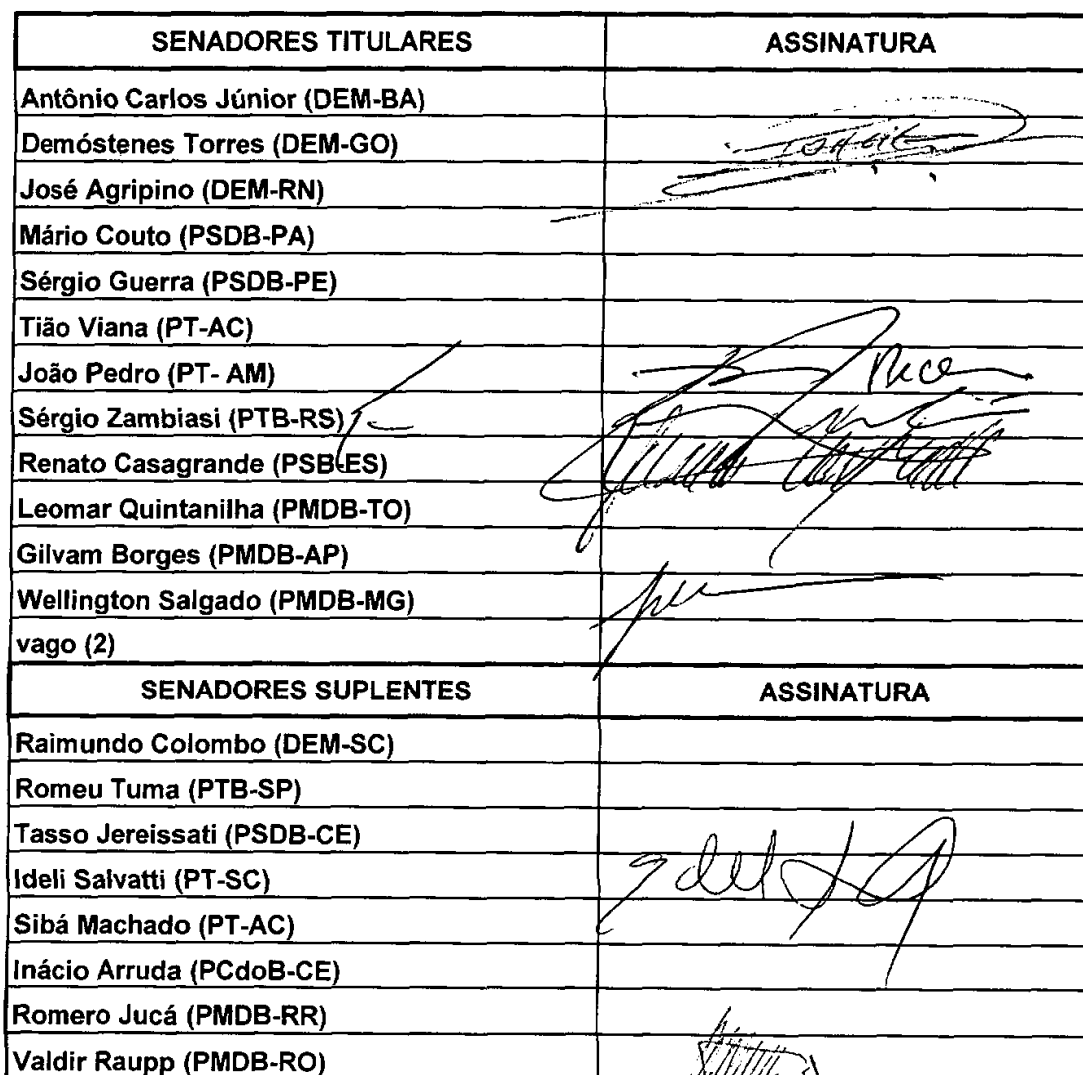 SENADORES TITULARES ASSINATURA
Antônio Carlos Júnior (DEM-BA)
Demóstenes Torres (DEM-GO)
José Agripino (DEM-RN)
Mário Couto (PSDB-PA)
Sérgio Guerra (PSDB-PE)
Tião Viana (PT-AC)
João Pedro (PT- AM)
Sérgio Zambiasi (PTB-RS)
Renato Casagrande (PSB-ES)
Leomar Quintanilha (PMDB-TO)
Gilvam Borges (PMDB-AP)
Wellington Salgado (PMDB-MG)
vago (2)
SENADORES SUPLENTES ASSINATURA
Raimundo Colombo (DEM-SC)
Romeu Tuma (PTB-SP)
Tasso Jereissati (PSDB-CE)
Ideli Salvatti (PT-SC)
Sibá Machado (PT-AC)
Inácio Arruda (PCdoB-CE)
Romero Jucá (PMDB-RR)
Valdir Raupp (PMDB-RO)